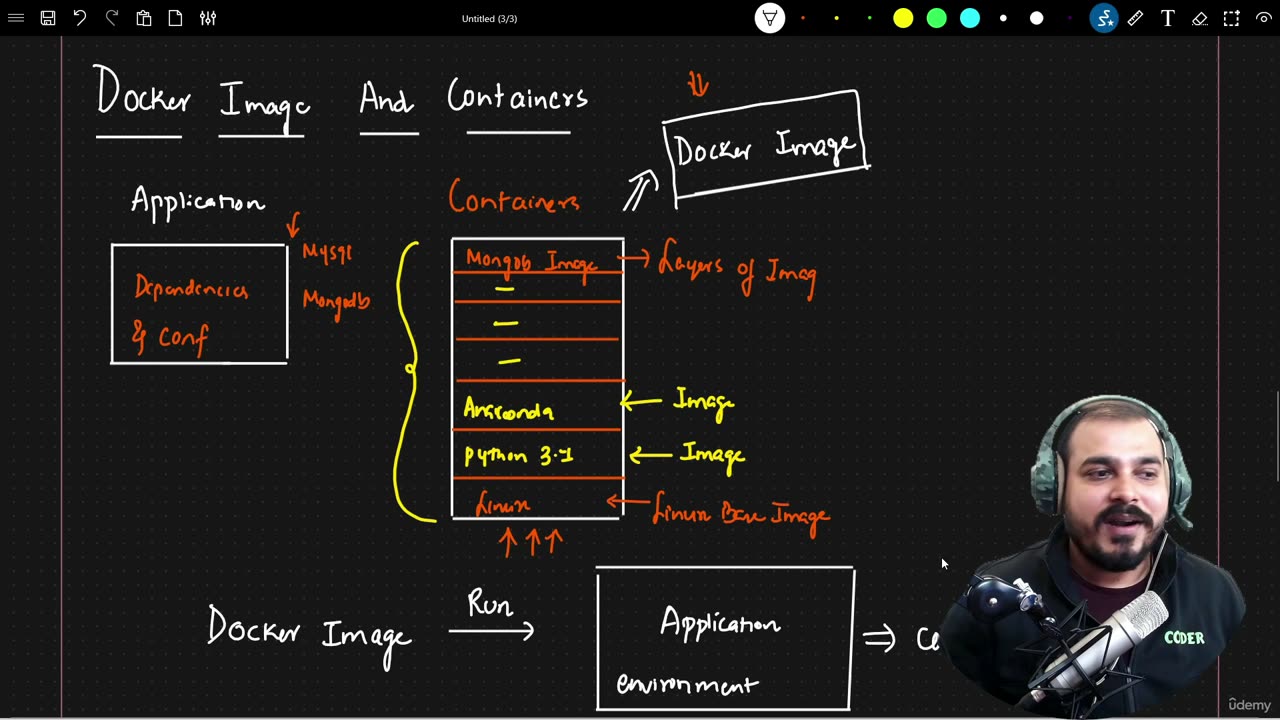 Untitled (3/3)
T
Docker Image And Containers
Docker Image
Application
Containers
Mysql
Mongodb
Dependencies
& Conf
Mongodb Image
Layers of Imag
Anaconda
Image
Python 3.1
Image
Linux
Linux Base Image
Docker Image
Run
Application
environment
CODER
ûdemy